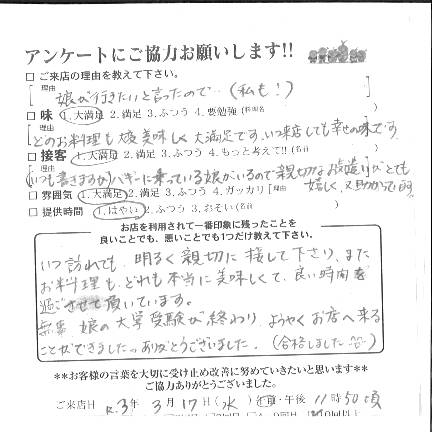 アンケートにご協力お願いします!!
□ ご来店の理由を教えて下さい。
理由 娘が行きたいと言ったので…(私も!)
□ 味 1.大満足 2.満足 3.ふつう 4.要勉強 (料理名
理由 どのお料理も大変美味しく大満足です。いつ来店しても幸せの味です
□ 接客 1.大満足 2.満足 3.ふつう 4.もっと考えて!! (名前
(いつも書きますが)バギーに乗っている娘がいるので親切なお心遣いがとても
嬉しく、又助かって
□ 雰囲気 1.大満足 2.満足 3.ふつう 4.ガッカリ [理由
□ 提供時間 1.はやい 2.ふつう 3.おそい (名前
お店を利用されて一番印象に残ったことを
良いことでも、悪いことでも1つだけ教えて下さい。
いつ訪れても、明るく親切に接して下さり、また
お料理も、どれも本当に美味しくて、良い時間を
過ごさせて頂いています。
無事 娘の大学受験が終わり、ようやくお店へ来る
ことができました。ありがとうございました。(合格しました
**お客様の言葉を大切に受け止め改善に努めていきたいと思います**
ご協力ありがとうございました。
ご来店日 R.3年 3月 17日(水) 午前・午後 11時50頃